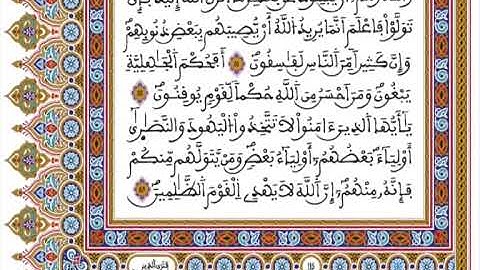 اَللَّهُ إِلَيْكَ فَإِن
تَوَلَّوْاْ فَاعْلَمَ اَنَّمَا يُرِيدُ اللَّهُ أَنْ يُّصِيبَهُم بِبَعْضِ ذُنُوبِهِمْ
وَإِنَّ كَثِيرًا مِّنَ النَّاسِ لَفَٰسِقُونَ أَفَحُكْمَ الْجَٰهِلِيَّةِ
يَبْغُونَ وَمَنَ اَحْسَنُ مِنَ اللَّهِ حُكْمًا لِّقَوْمٍ يُوقِنُونَ
يَٰأَيُّهَا الذِينَ ءَامَنُواْ لَا تَتَّخِذُواْ الْيَهُودَ وَالنَّصَٰرَىٰ
أَوْلِيَآءَ بَعْضُهُمُۥٓ أَوْلِيَآءُ بَعْضٍ وَمَنْ يَّتَوَلَّهُم مِّنكُمْ
فَإِنَّهُۥ مِنْهُمُۥٓ إِنَّ اللَّهَ لَا يَهْدِي الْقَوْمَ الظَّٰلِمِينَ